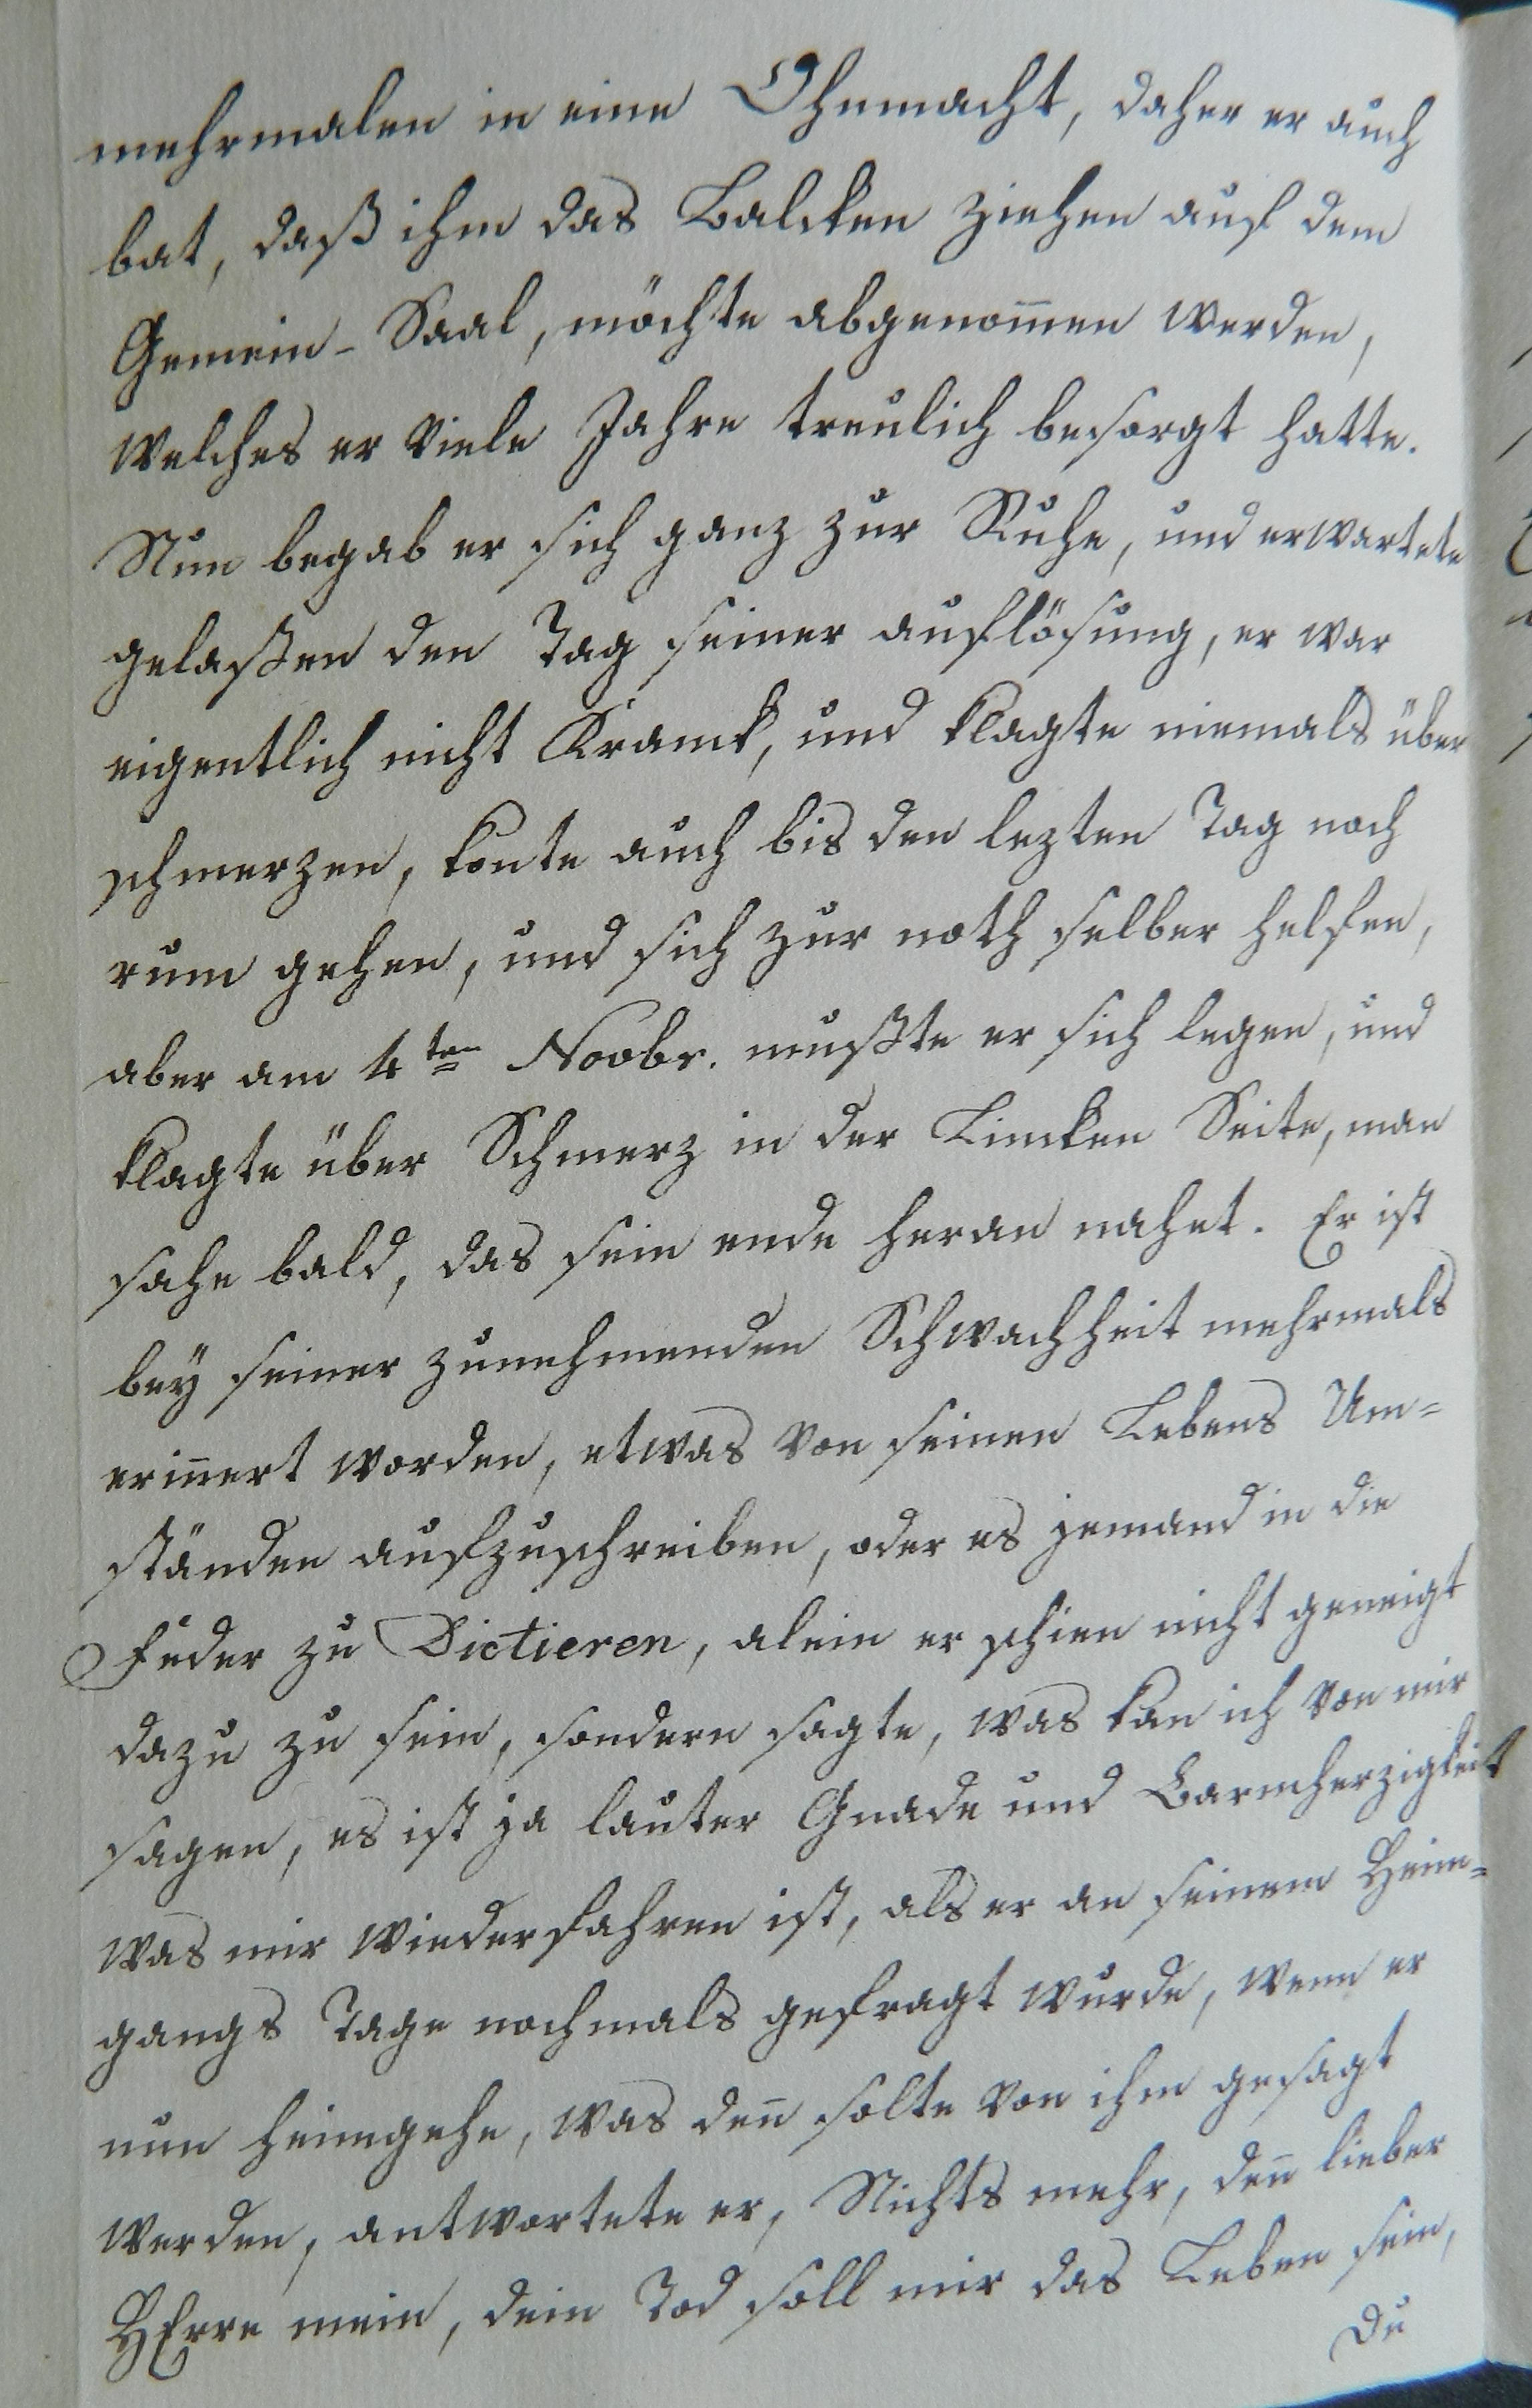 mehrmalen in eine Ohnmacht, daher er auch
bat, daß ihm das Balcken ziehen auf dem
Gemein-Saal, möchte abgenom̅en werden,
welches er viele Jahre treulich besorgt hatte.
Nun begab er sich ganz zur Ruhe, und erwartete
gelaßen den Tag seiner auflösung, er war
eigentlich nicht Kranck, und klagte niemals über
schmerzen, konte auch bis den lezten Tag noch
rum gehen, und sich zur noth selber helfen,
aber am 4ten Novbr. mußte er sich legen, und
klagte über Schmerz in der Lincken Seite, man
sahe bald, das sein ende heran nahet. Er ist
bey seiner zunehmenden Schwachheit mehrmals
erin̅ert worden, etwas von seinen Lebens Um=
ständen aufzuschreiben, oder es jemand in die
Feder zu Dictieren, alein er schien nicht geneigt
dazu zu sein, sondern sagte, was kan ich von mir
sagen, es ist ja lauter Gnade und Barmherzigkeit
was mir wiederfahren ist, als er an seinem Heim=
gangs Tage nochmals gefragt wurde, wenn er
nun heimgehe, was den̅ solte von ihm gesagt
werden, antwortete er, Nichts mehr, den̅ lieber
HErre mein, dein Tod soll mir das Leben sein,
Du